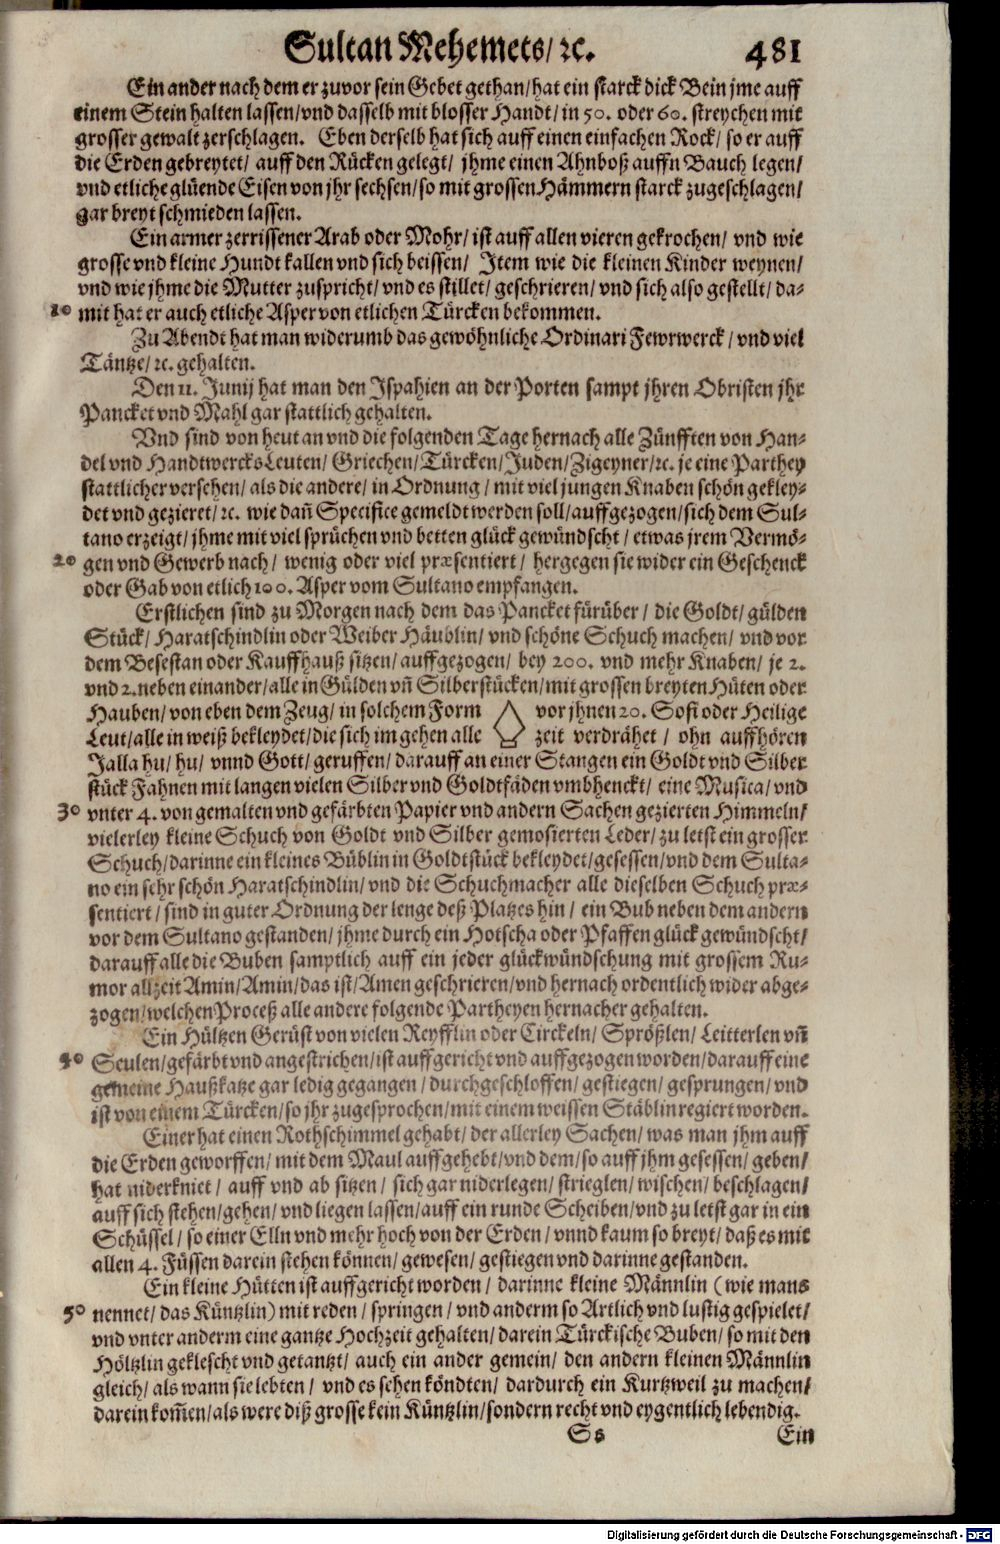 Sultan Mehemets/ ꝛc. 481
Ein ander nach dem er zuvor sein Gebet gethan/ hat ein starck dick Bein jme auff
einem Stein halten lassen/ vnd dasselb mit blosser Handt/ in 50. oder 60. streychen mit
grosser gewalt zerschlagen. Eben derselb hat sich auff einen einfachen Rock/ so er auff
die Erden gebreytet/ auff den Rücken gelegt/ jhme einen Ahnboß auffn Bauch legen/
vnd etliche glüende Eisen von jhr sechsen/ so mit grossen Hämmern starck zugeschlagen/
gar breyt schmieden lassen.
Ein armer zerrissener Arab oder Mohr/ ist auff allen vieren gekrochen/ vnd wie
grosse vnd kleine Hundt kallen vnd sich beissen/ Item wie die kleinen Kinder weynen/
vnd wie jhme die Mutter zuspricht/ vnd es stillet/ geschrieren/ vnd sich also gestellt/ da-
10 mit hat er auch etliche Asper von etlichen Türcken bekommen.
Zu Abendt hat man widerumb das gewöhnliche Ordinari Fewrwerck/ vnd viel
Täntze/ ꝛc. gehalten.
Den 11. Junij hat man den Ispahien an der Porten sampt jhren Obristen jhr
Pancket vnd Mahl gar stattlich gehalten.
Vnd sind von heut an vnd die folgenden Tage hernach alle Zünfften von Han-
del vnd Handtwercks Leuten/ Griechen/ Türcken/ Juden/ Zigeyner/ ꝛc. je eine Parthey
stattlicher versehen/ als die andere/ in Ordnung/ mit viel jungen Knaben schön gekley-
det vnd gezieret/ ꝛc. wie dañ Specifice gemeldt werden soll/ auffgezogen/ sich dem Sul-
tano erzeigt/ jhme mit viel sprüchen vnd betten glück gewündscht/ etwas jrem Vermö-
20 gen vnd Gewerb nach/ wenig oder viel præsentiert/ hergegen sie wider ein Geschenck
oder Gab von etlich 100. Asper vom Sultano empfangen.
Erstlichen sind zu Morgen nach dem das Pancket fürüber/ die Goldt/ gülden
Stück/ Haratschindlin oder Weiber Häublin/ vnd schöne Schuch machen/ vnd vor
dem Besestan oder Kauffhauß sitzen/ auffgezogen/ bey 200. vnd mehr Knaben/ je 2.
vnd 2. neben einander/ alle in Gülden vñ Silberstücken/ mit grossen breyten Hüten oder
Hauben/ von eben dem Zeug/ in solchem Form vor jhnen 20. Sofi oder Heilige
Leut/ alle in weiß bekleydet/ die sich im gehen alle zeit verdrähet/ ohn auffhören
Jalla hu/ hu/ vnnd Gott/ geruffen/ darauff an einer Stangen ein Goldt vnd Silber
stück Fahnen mit langen vielen Silber vnd Goldtfäden vmbhenckt/ eine Musica/ vnd
30 vnter 4. von gemalten vnd gefärbten Papier vnd andern Sachen gezierten Himmeln/
vielerley kleine Schuch von Goldt vnd Silber gemosierten Leder/ zu letst ein grosser
Schuch/ darinne ein kleines Büblin in Goldtstück bekleydet/ gesessen/ vnd dem Sulta-
no ein sehr schön Haratschindlin/ vnd die Schuchmacher alle dieselben Schuch præ-
sentiert/ sind in guter Ordnung der lenge deß Platzes hin/ ein Bub neben dem andern
vor dem Sultano gestanden/ jhme durch ein Hotscha oder Pfaffen glück gewündscht/
darauff alle die Buben samptlich auff ein jeder glückwündschung mit grossem Ru-
mor allzeit Amin/ Amin/ das ist/ Amen geschrieren/ vnd hernach ordentlich wider abge-
zogen/ welchen Proceß alle andere folgende Partheyen hernacher gehalten.
Ein Hültzen Gerüst von vielen Reyfflin oder Circkeln/ Sprößlen/ Leitterlen vñ
40 Seulen/ gefärbt vnd angestrichen/ ist auffgericht vnd auffgezogen worden/ darauff eine
gemeine Haußkatze gar ledig gegangen/ durchgeschloffen/ gestiegen/ gesprungen/ vnd
ist von einem Türcken/ so jhr zugesprochen/ mit einem weissen Stäblin regiert worden.
Einer hat einen Rothschimmel gehabt/ der allerley Sachen/ was man jhm auff
die Erden geworffen/ mit dem Maul auffgehebt/ vnd dem/ so auff jhm gesessen/ geben/
hat niderkniet/ auff vnd ab sitzen/ sich gar niderlegen/ strieglen/ wischen/ beschlagen/
auff sich stehen/ gehen/ vnd liegen lassen/ auff ein runde Scheiben/ vnd zu letst gar in ein
Schüssel/ so einer Elln vnd mehr hoch von der Erden/ vnnd kaum so breyt/ daß es mit
allen 4. Füssen darein stehen können/ gewesen/ gestiegen vnd darinne gestanden.
Ein kleine Hütten ist auffgericht worden/ darinne kleine Männlin (wie mans
50 nennet/ das Küntzlin) mit reden/ springen/ vnd anderm so Artlich vnd lustig gespielet/
vnd vnter anderm eine gantze Hochzeit gehalten/ darein Türckische Buben/ so mit den
Höltzlin geklescht vnd getantzt/ auch ein ander gemein/ den andern kleinen Männlin
gleich/ als wann sie lebten/ vnd es sehen köndten/ dardurch ein Kurtzweil zu machen/
darein kom̃en/ als were diß grosse kein Küntzlin/ sondern recht vnd eygentlich lebendig.
Ss Ein
Digitalisierung gefördert durch die Deutsche Forschungsgemeinschaft - DFG